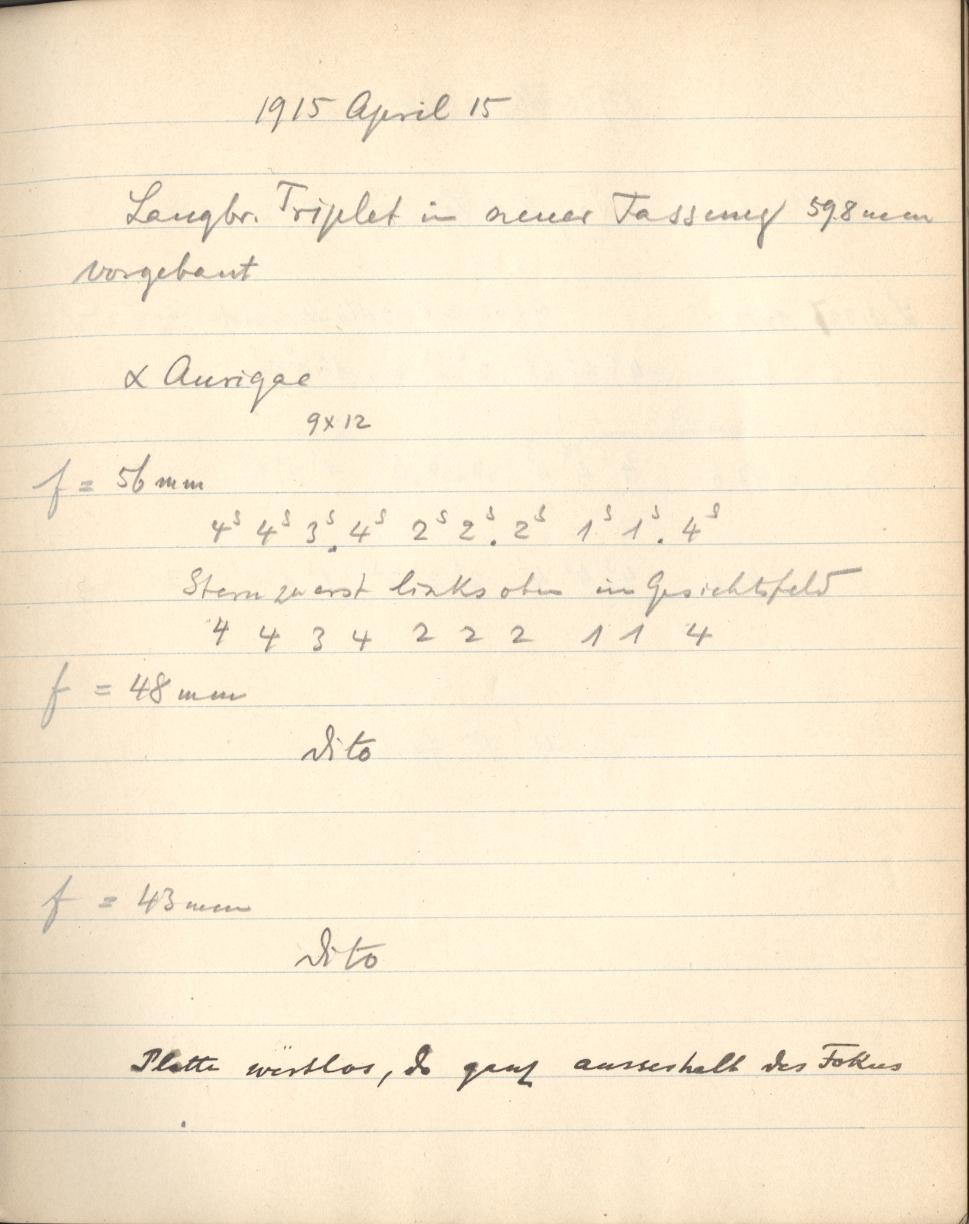 1915 April 15
Langbr. Triplet in neuer Fassung 598mm
vorgebaut
α Aurigae
9x12
f = 56 mm
4ˢ 4ˢ 3ˢ. 4ˢ 2ˢ 2ˢ. 2ˢ 1ˢ 1ˢ. 4ˢ
Stern zuerst links oben im Gesichtsfeld
4 4 3 4 2 2 2 1 1 4
f = 48 mm
dito
f = 43 mm
dito
Platte wertlos, da ganz ausserhalb des Fokus